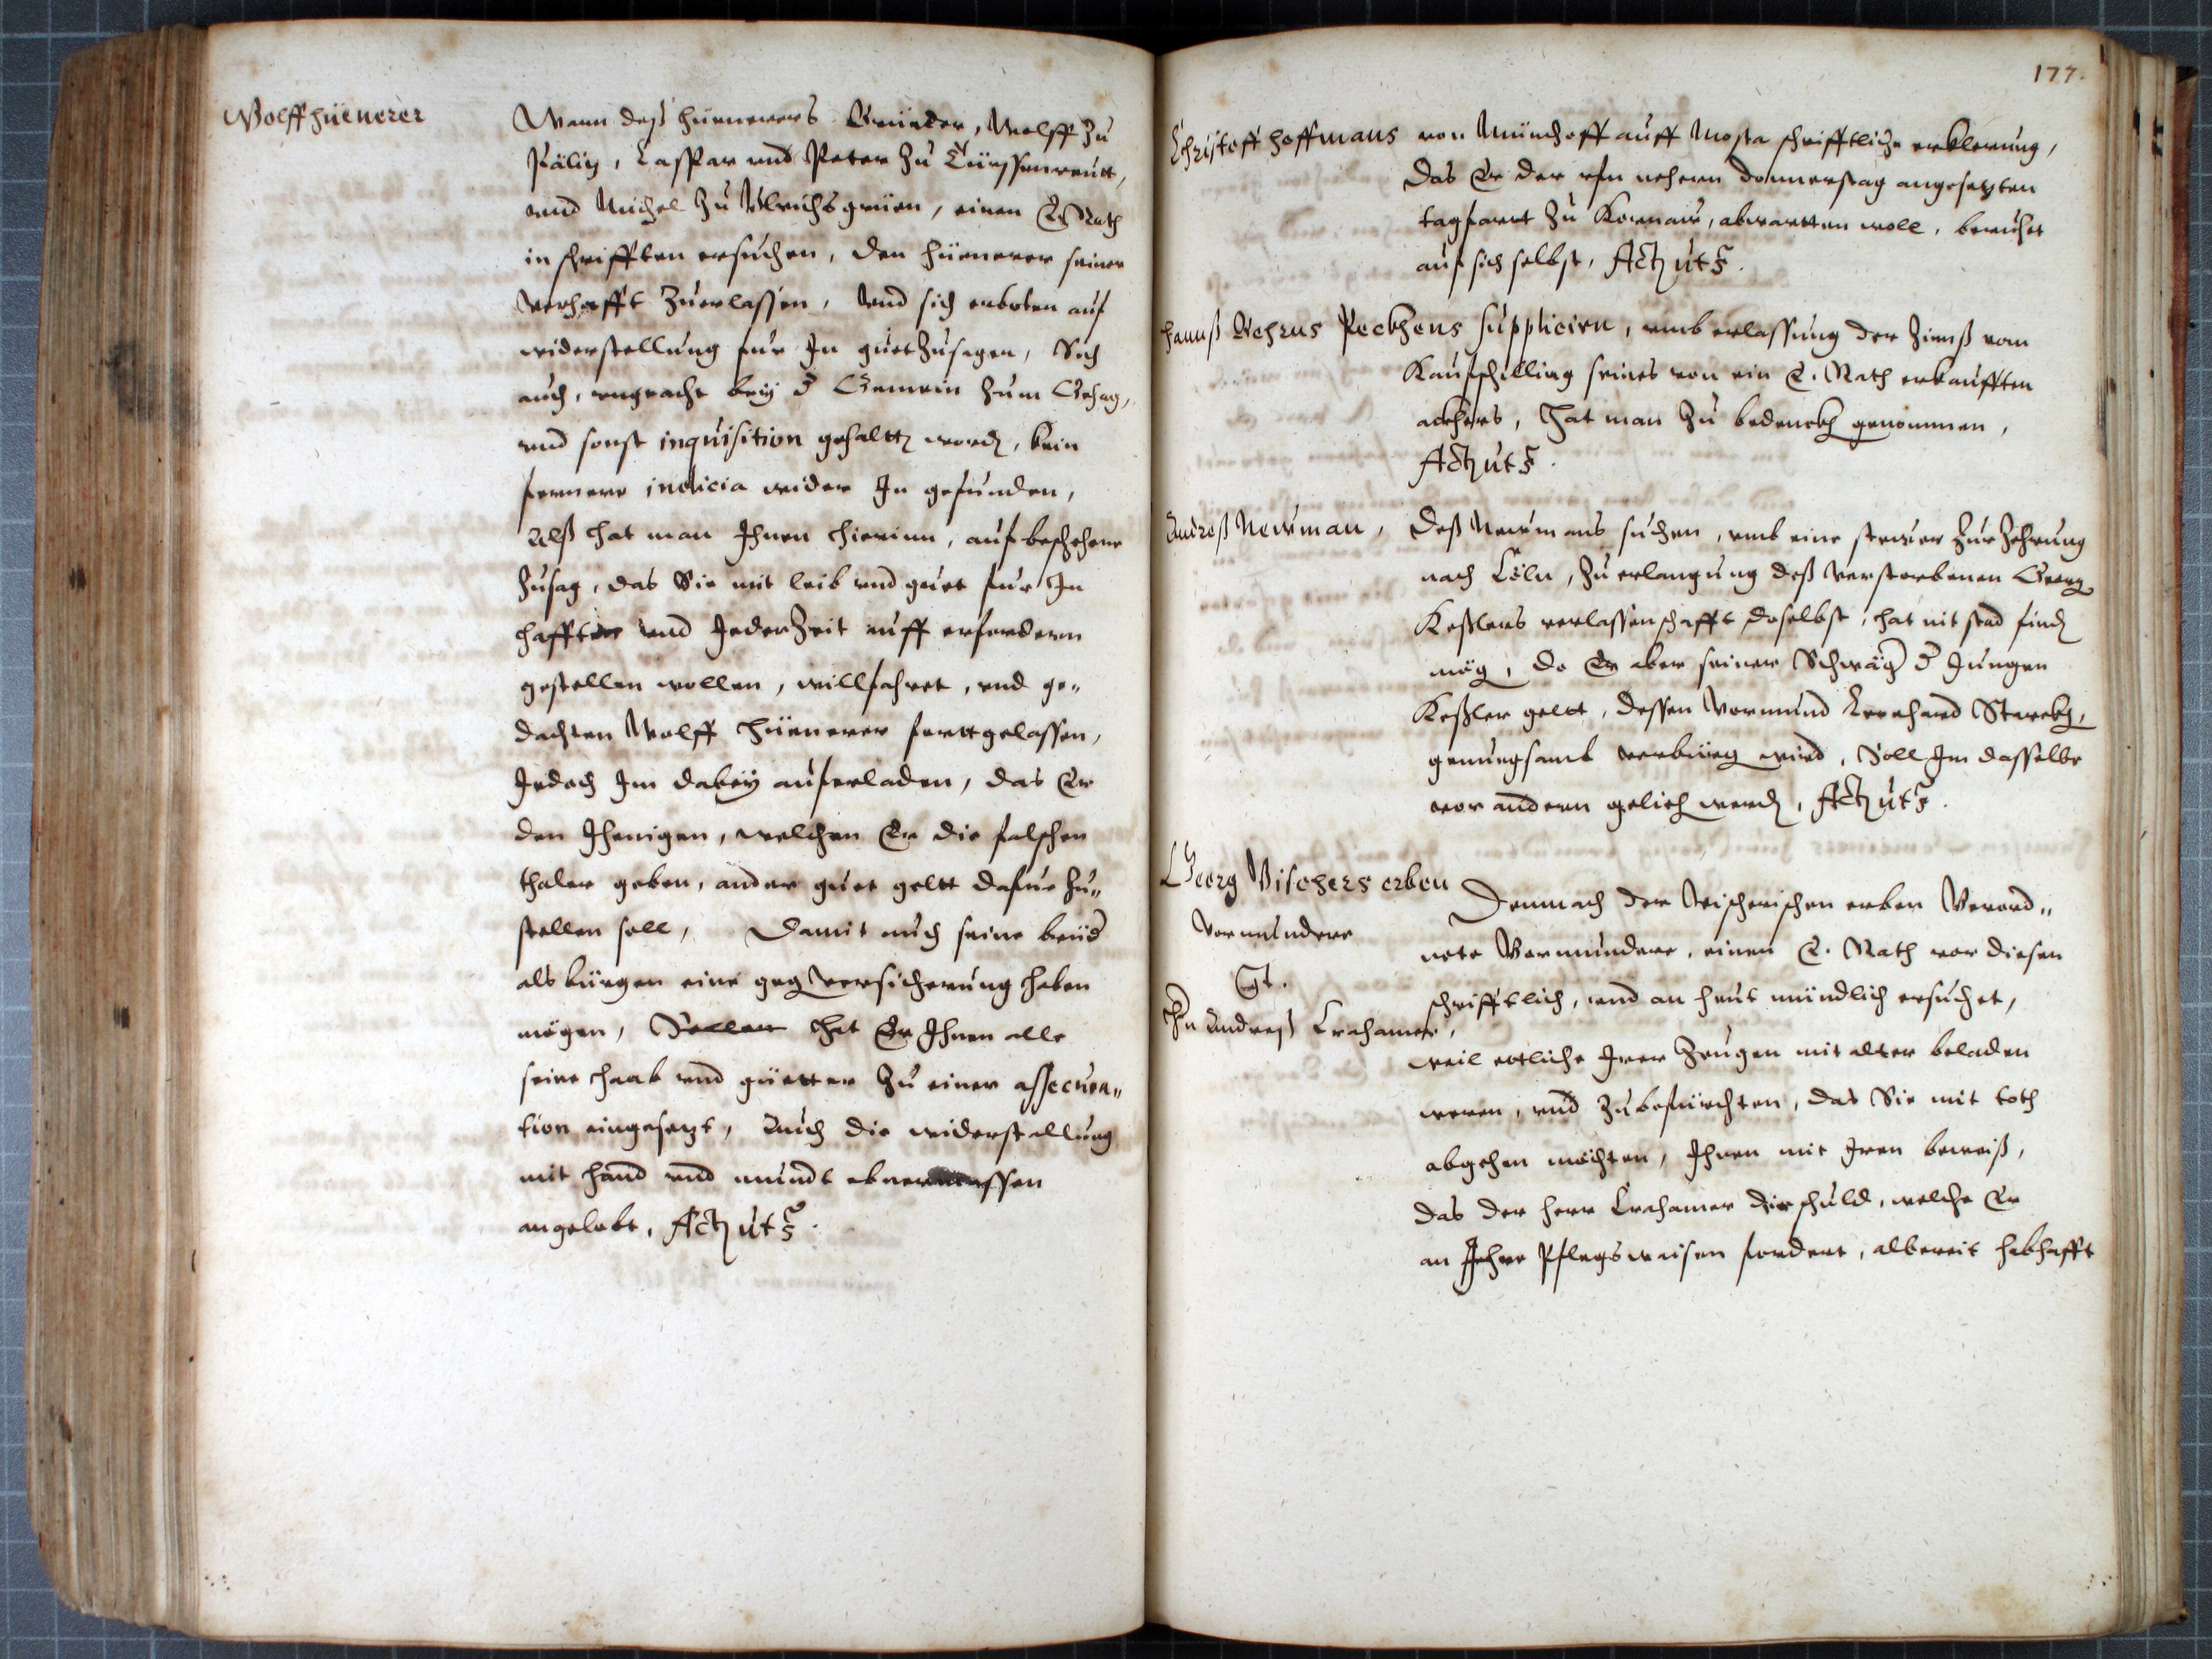 Wolff hüenerer
Wann deß hüenerers Brüeder, Wolff zu
Pälitz, Caspar vnd Peter zu Türssenreutt,
vnd Michel zu Vlrichsgrüen, einen E. Rath
in schrifften ersuchen, den hüenerer seiner
verhafft zuerlassen, vnd sich erboten auf
widerstellung fur In guetzusagen, Sich
auch, vngeacht bey d Gemein zum Gehag,
vnd sonst inquisition gehaltt word, kein
fernere indicia wider In gefunden,
Alß hat man Ihnen hierinn, auf beschehene
Zusag, das Sie mit leib vnd guet fur In
hafften vnd Jederzeit auff erfordern
gestellen wollen, willfahret, vnd ge„
dachten Wolff Hüenerer forttgelassen,
Jedoch Im dabey auferladen, das Er
den Jhenigen, welchen Er die falschen
thaler geben, ander guet geltt dafur zu„
stellen soll, Damit auch seine brüd
als bürgen eine geg versicherung haben
mögen, hat Er Ihnen alle
seine haab vnd güetter zu einer assecura„
tion eingesetzt, Auch die widerstellung
mit hand vnd mundt ebnermassen
angelobt, Act ut s.
177.
Christoff hoffmans von Münchoff auff Mosta schrifftliche erklerung,
Das Er der vfn nehern donnerstag angesetzten
tagfartt zu Kornaw, abwartten woll, beruhet
auf sich selbst, Act ut s.
Hannß Peckhens suppliciren, vmb erlassung der Zinnß vom
Kaufschilling seines von ein E. Rath erkaufften
ackhers, Hat man zu bedenckh genommen,
Act ut s.
Andreß Newman, Deß Newmans suchen, vmb eine stewer zur Zehrung
nach Cöln, zu erlangung deß verstorbenen Georg
Keßlers verlassenschafft doselbst, hat nit stad find
mög, do Er aber seiner Schwäg d Jungen
Keßler geltt, dessen Vormund Leonhard Starckh,
genuegsamb verbürg wird, Soll Im dasselbe
vor andern gelieh werd, Act ut s.
Georg Vischers erben
Vormundere
Ct.
Hn Andreß Crahamer,
Demnach der Vischerischen erben Verord„
nete Vormundere, einen E. Rath vor diesen
schrifftlich, vnd an heut mündlich ersuchet,
weil ettliche Irer Zeugen mit alter beladen
weren, vnd zubefürchten, das Sie mit toth
abgehen möchten, Ihnen mit Iren beweiß,
das der herr Crahamer die schuld, welche Er
an Ihre Pflegswaisen fordert, albereit habhafft